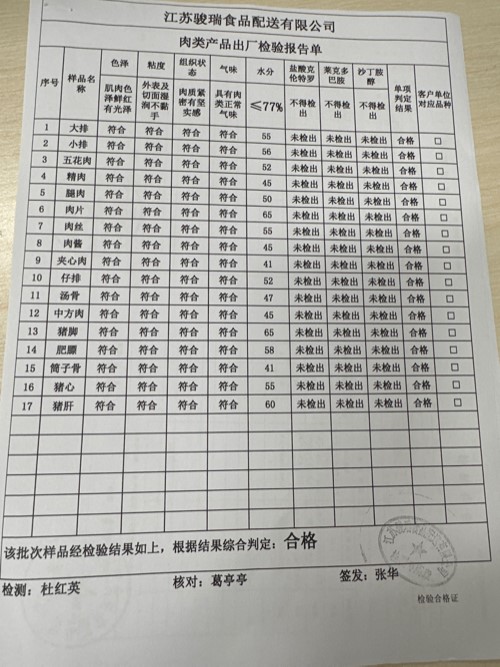 江苏骏瑞食品配送有限公司
肉类产品出厂检验报告单
序号 样品名称 色泽 粘度 组织状态 气味 水分 盐酸克伦特罗 莱克多巴胺 沙丁胺醇 单项判定结果 客户单位对应品种
肌肉色泽鲜红有光泽 外表及切面湿润不黏手 肉质紧密有坚实感 具有肉类正常气味 ≤77% 不得检出 不得检出 不得检出
1 大排 符合 符合 符合 符合 55 未检出 未检出 未检出 合格 □
2 小排 符合 符合 符合 符合 56 未检出 未检出 未检出 合格 □
3 五花肉 符合 符合 符合 符合 52 未检出 未检出 未检出 合格 □
4 精肉 符合 符合 符合 符合 45 未检出 未检出 未检出 合格 □
5 腿肉 符合 符合 符合 符合 50 未检出 未检出 未检出 合格 □
6 肉片 符合 符合 符合 符合 65 未检出 未检出 未检出 合格 □
7 肉丝 符合 符合 符合 符合 55 未检出 未检出 未检出 合格 □
8 肉酱 符合 符合 符合 符合 45 未检出 未检出 未检出 合格 □
9 夹心肉 符合 符合 符合 符合 41 未检出 未检出 未检出 合格 □
10 仔排 符合 符合 符合 符合 52 未检出 未检出 未检出 合格 □
11 汤骨 符合 符合 符合 符合 47 未检出 未检出 未检出 合格 □
12 中方肉 符合 符合 符合 符合 45 未检出 未检出 未检出 合格 □
13 猪脚 符合 符合 符合 符合 65 未检出 未检出 未检出 合格 □
14 肥膘 符合 符合 符合 符合 58 未检出 未检出 未检出 合格 □
15 筒子骨 符合 符合 符合 符合 41 未检出 未检出 未检出 合格 □
16 猪心 符合 符合 符合 符合 55 未检出 未检出 未检出 合格 □
17 猪肝 符合 符合 符合 符合 60 未检出 未检出 未检出 合格 □
该批次样品经检验结果如上，根据结果综合判定：合格
检测：杜红英 核对：葛亭亭 签发：张华
检验合格证